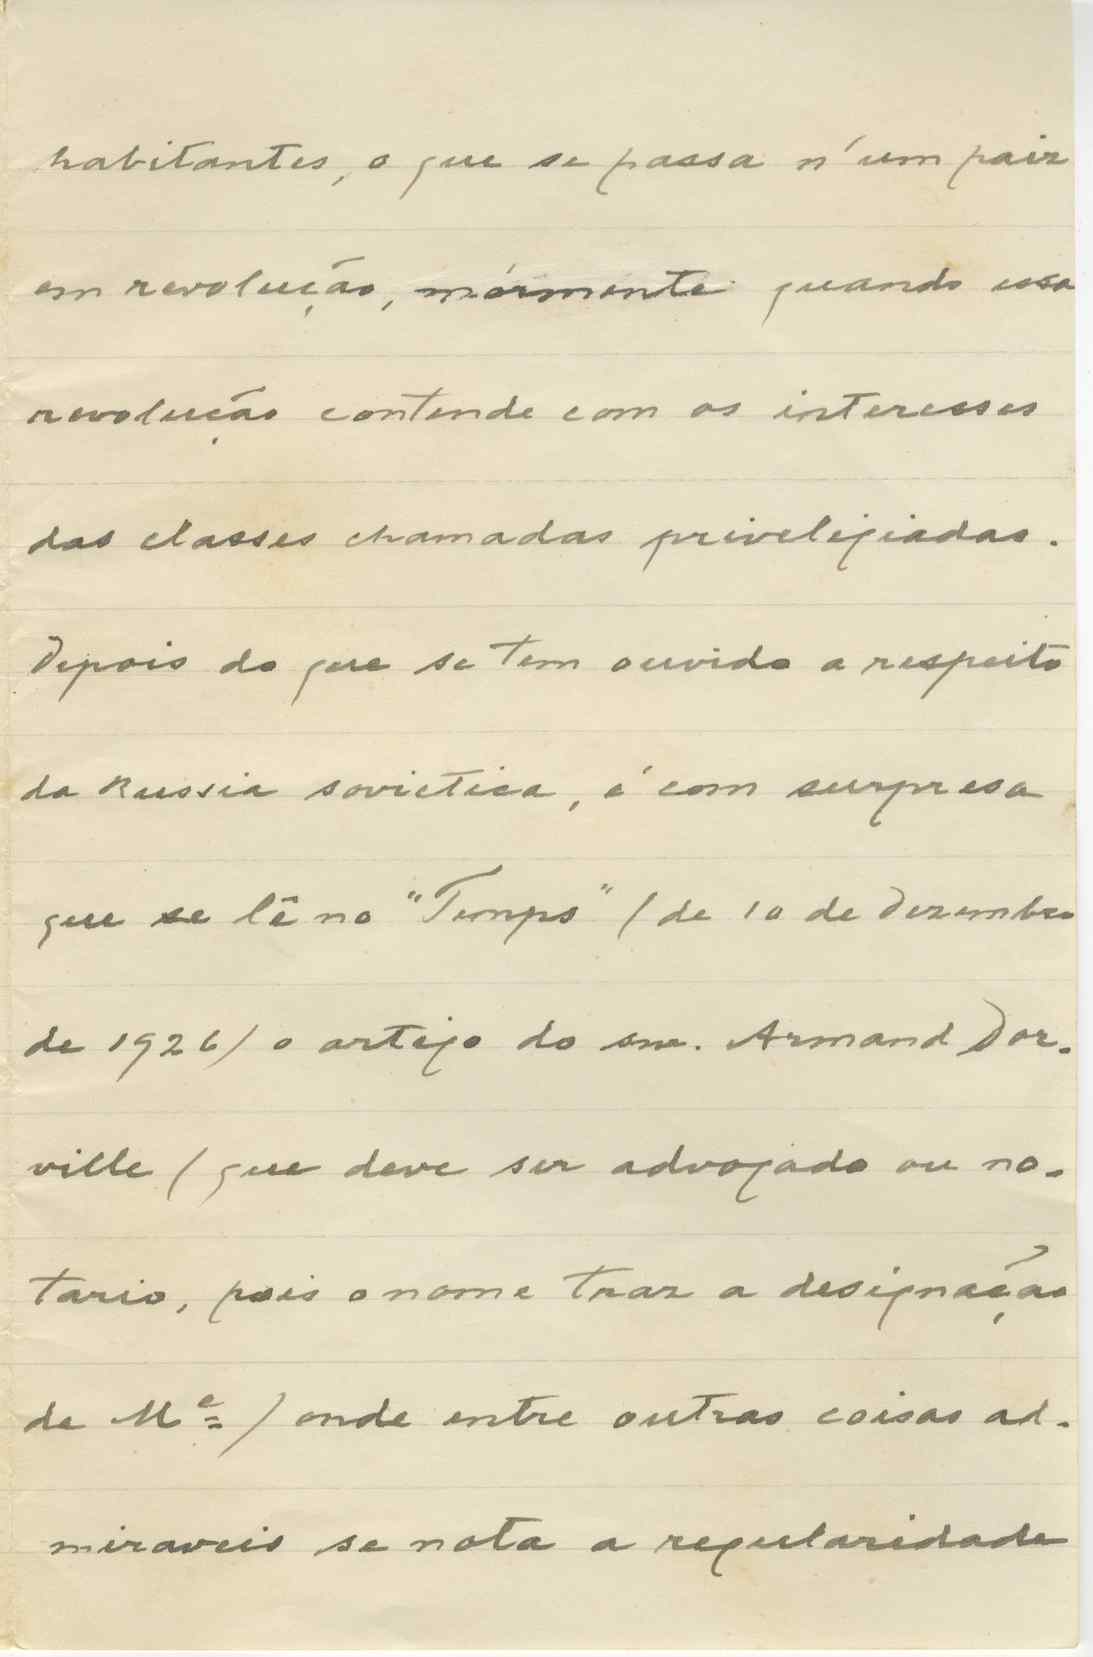 habitantes, o que se passa n'um paiz
em revolução, mórmente quando essa
revolução contende com os interesses
das classes chamadas priveligiadas.
Depois do que se tem ouvido a respeito
da Russia sovietica, é com surpresa
que se lê no "Temps" (de 10 de Dezembro
de 1926) o artigo do snr. Armand Dor-
ville (que deve ser advogado ou no-
tario, pois o nome traz a designação
de Me) onde entre outras coisas ad-
miraveis se nota a regularidade